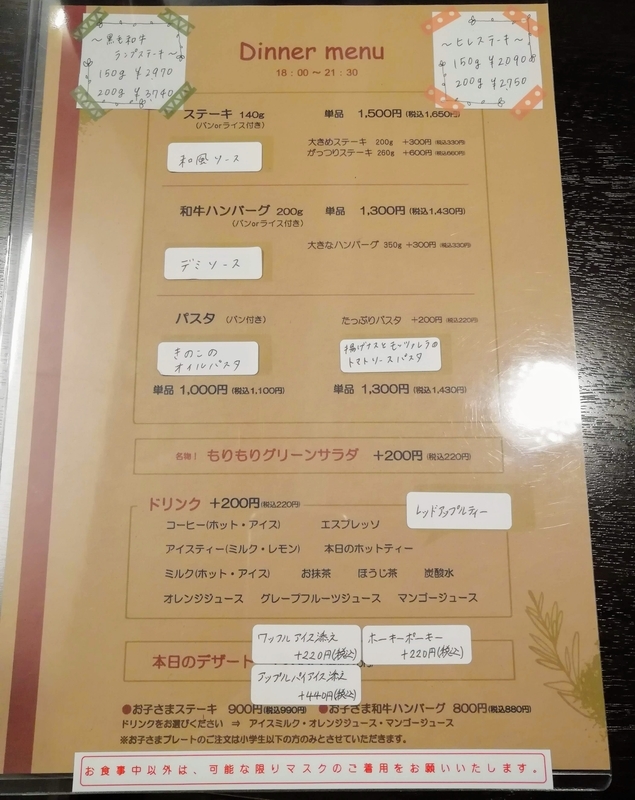 ～黒毛和牛
ランプステーキ～
150g ¥2970
200g ¥3740
Dinner menu
18：00 ～ 21：30
～ヒレステーキ～
150g ¥2090
200g ¥2750
ステーキ 140g
(パンorライス付き)
単品 1,500円 (税込1,650円)
大きめステーキ 200g +300円(税込330円)
がっつりステーキ 260g +600円(税込660円)
和風ソース
和牛ハンバーグ 200g
(パンorライス付き)
単品 1,300円 (税込1,430円)
大きなハンバーグ 350g +300円(税込330円)
デミソース
パスタ (パン付き)
たっぷりパスタ +200円(税込220円)
きのこの
オイルパスタ
揚げナスとモッツァレラの
トマトソースパスタ
単品 1,000円 (税込1,100円)
単品 1,300円 (税込1,430円)
名物！ もりもりグリーンサラダ +200円(税込220円)
ドリンク +200円(税込220円)
レッドアップルティー
コーヒー(ホット・アイス) エスプレッソ
アイスティー(ミルク・レモン) 本日のホットティー
ミルク(ホット・アイス) お抹茶 ほうじ茶 炭酸水
オレンジジュース グレープフルーツジュース マンゴージュース
本日のデザート
ワッフルアイス添え
+220円(税込)
ホーキーポーキー
+220円(税込)
アップルパイアイス添え
+440円(税込)
●お子さまステーキ 900円(税込990円) ●お子さま和牛ハンバーグ 800円(税込880円)
ドリンクをお選びください ⇒ アイスミルク・オレンジジュース・マンゴージュース
※お子さまプレートのご注文は小学生以下の方のみとさせていただきます。
お食事中以外は、可能な限りマスクのご着用をお願いいたします。